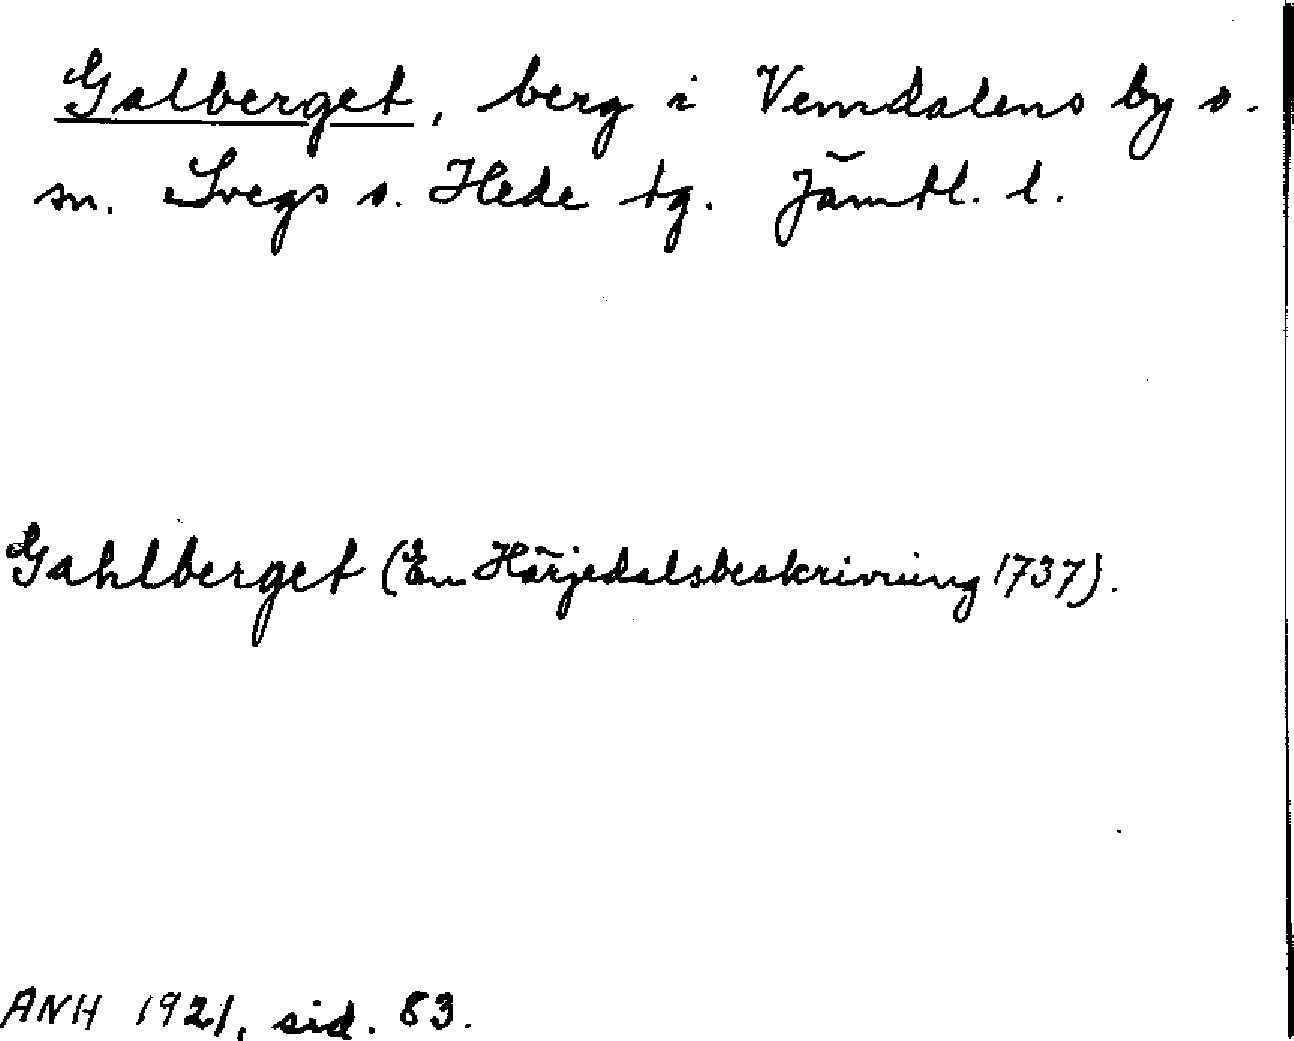 Galberget, berg i Vemdalens by o.
sn. Svegs o. Hede tg. Jämtl. l.
Gahlberget (En Härjedalsbeskrivning 1737).
ANH 1921, sid. 83.